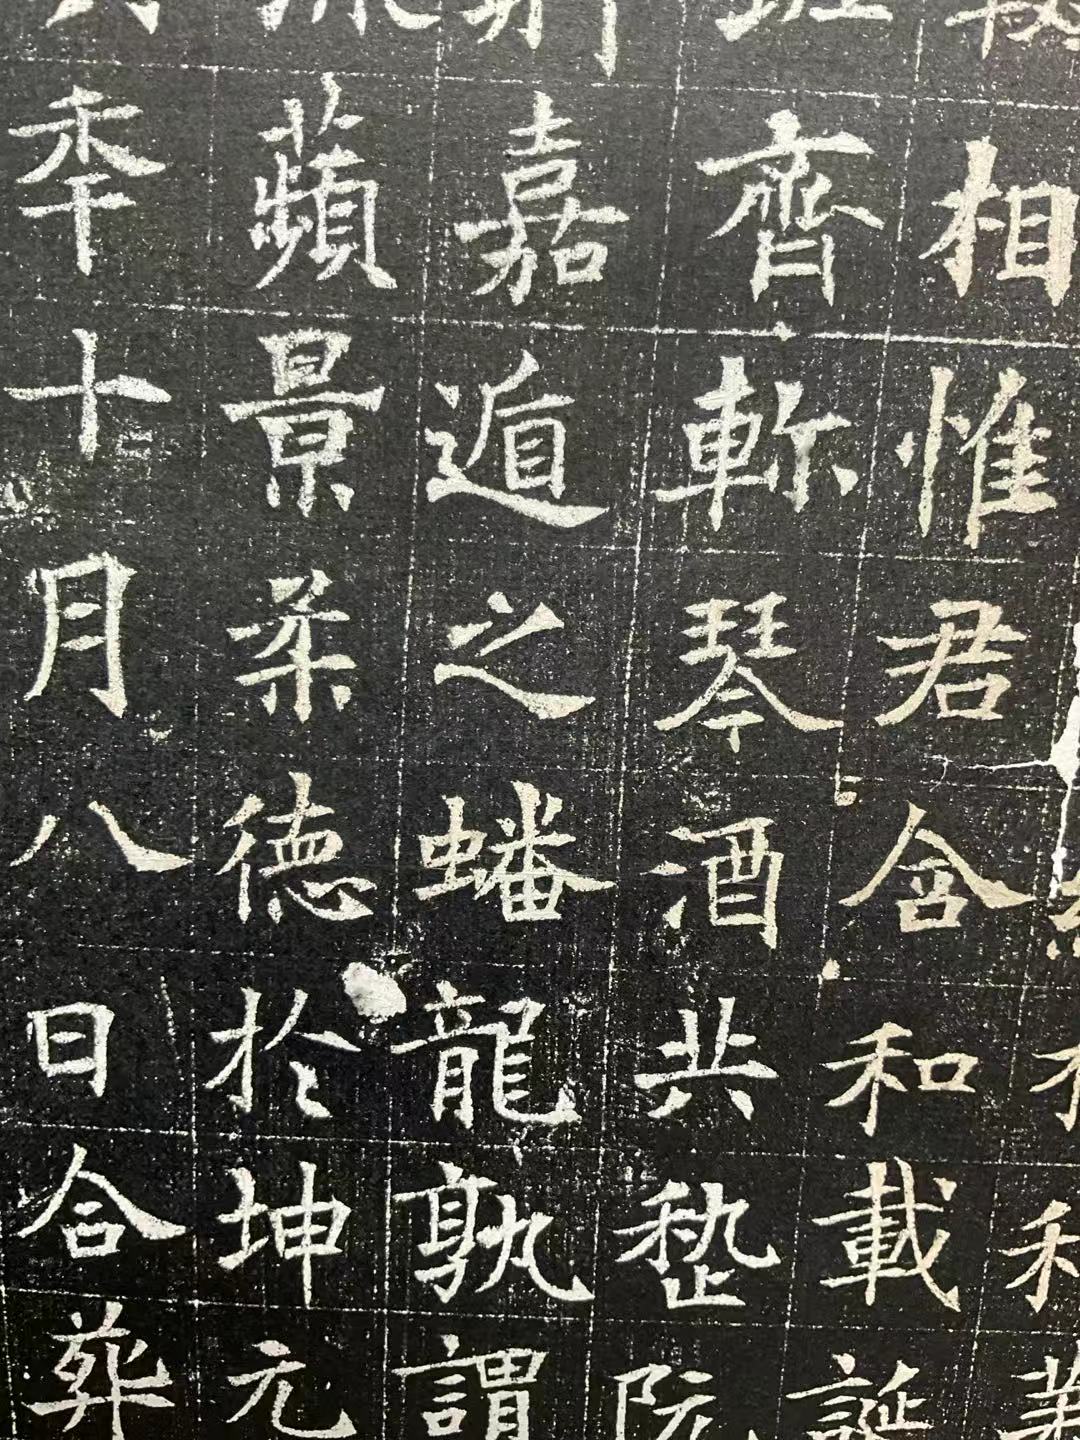 相惟君含和載誕
齊斬琴酒共嵇阮
嘉遁之蟠龍孰謂
蘋景柔德於坤元
秊十月八日合葬